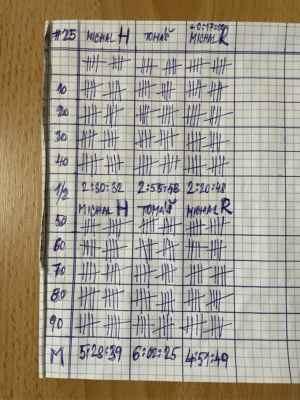 #25 MICHAL H TOMÁŠ MICHAL R
𝍸 𝍸 𝍸 𝍸 𝍸 𝍸
10 𝍸 𝍸 𝍸 𝍸 𝍸 𝍸
20 𝍸 𝍸 𝍸 𝍸 𝍸 𝍸
30 𝍸 𝍸 𝍸 𝍸 𝍸 𝍸
40 𝍸 𝍸 𝍸 𝍸 𝍸 𝍸
1/2 2:30:32 2:55:58 2:20:48
MICHAL H TOMÁŠ MICHAL R
50 𝍸 𝍸 𝍸 𝍸 𝍸 𝍸
60 𝍸 𝍸 𝍸 𝍸 𝍸 𝍸
70 𝍸 𝍸 𝍸 𝍸 𝍸 𝍸
80 𝍸 𝍸 𝍸 𝍸 𝍸 𝍸
90 𝍸 𝍸 𝍸 𝍸 𝍸 𝍸
M 5:28:39 6:02:25 4:51:49